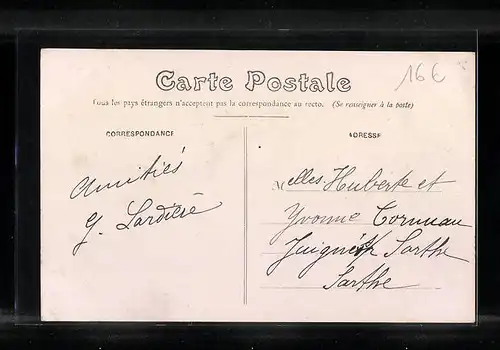 16€
Carte Postale
Tous les pays étrangers n'acceptent pas la correspondance au recto. (Se renseigner à la poste)
CORRESPONDANCE
ADRESSE
Amitiés
Melles Huberte et
Yvonne Cornueau
Sarthe
Sarthe